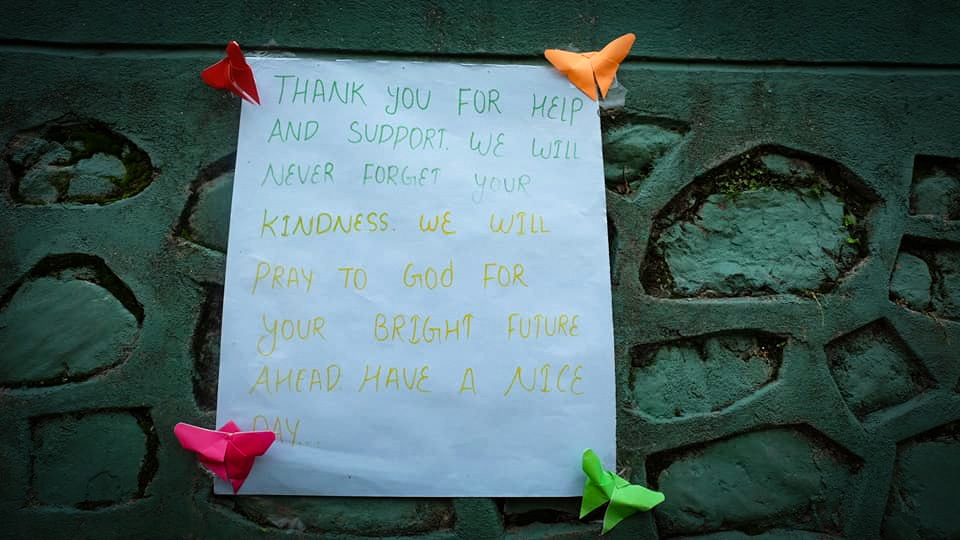 THANK YOU FOR HELP
AND SUPPORT. WE WILL
NEVER FORGET YOUR
KINDNESS. WE WILL
PRAY TO GOd FOR
YOUR BRIGHT FUTURE
AHEAD. HAVE A NICE
DAY...